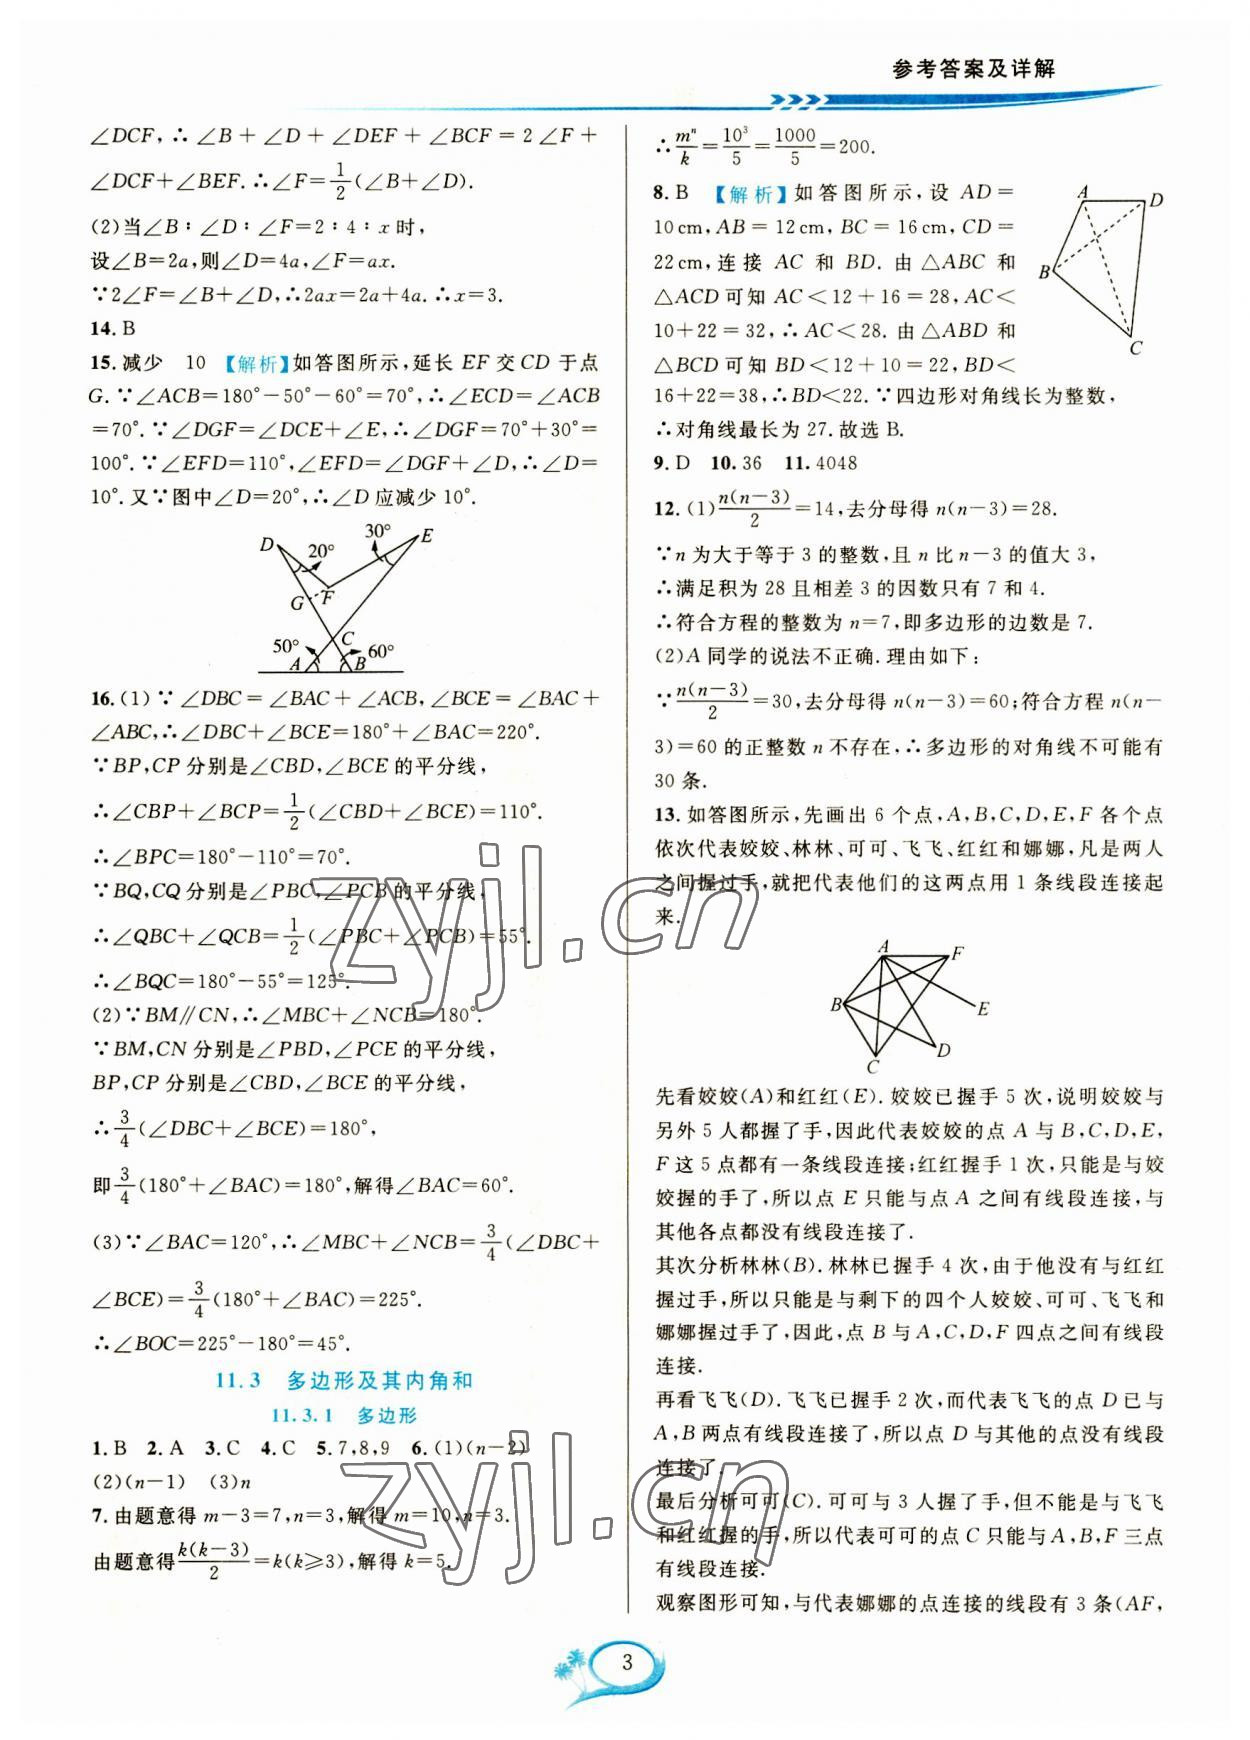 参考答案及详解
∠DCF,∴∠B+∠D+∠DEF+∠BCF=2∠F+
∠DCF+∠BEF.∴∠F=1/2(∠B+∠D).
(2)当∠B∶∠D∶∠F=2∶4∶x时,
设∠B=2a,则∠D=4a,∠F=ax.
∵2∠F=∠B+∠D,∴2ax=2a+4a.∴x=3.
14.B
15.减少 10 【解析】如答图所示,延长EF交CD于点
G.∵∠ACB=180°-50°-60°=70°,∴∠ECD=∠ACB
=70°.∵∠DGF=∠DCE+∠E,∴∠DGF=70°+30°=
100°.∵∠EFD=110°,∠EFD=∠DGF+∠D,∴∠D=
10°.又∵图中∠D=20°,∴∠D应减少10°.
D 20° 30° E
G F
C
50° A B 60°
16.(1)∵∠DBC=∠BAC+∠ACB,∠BCE=∠BAC+
∠ABC,∴∠DBC+∠BCE=180°+∠BAC=220°.
∵BP,CP分别是∠CBD,∠BCE的平分线,
∴∠CBP+∠BCP=1/2(∠CBD+∠BCE)=110°.
∴∠BPC=180°-110°=70°.
∵BQ,CQ分别是∠PBC,∠PCB的平分线,
∴∠QBC+∠QCB=1/2(∠PBC+∠PCB)=55°.
∴∠BQC=180°-55°=125°.
(2)∵BM∥CN,∴∠MBC+∠NCB=180°.
∵BM,CN分别是∠PBD,∠PCE的平分线,
BP,CP分别是∠CBD,∠BCE的平分线,
∴3/4(∠DBC+∠BCE)=180°,
即3/4(180°+∠BAC)=180°,解得∠BAC=60°.
(3)∵∠BAC=120°,∴∠MBC+∠NCB=3/4(∠DBC+
∠BCE)=3/4(180°+∠BAC)=225°.
∴∠BOC=225°-180°=45°.
11.3 多边形及其内角和
11.3.1 多边形
1.B 2.A 3.C 4.C 5.7,8,9 6.(1)(n-2)
(2)(n-1) (3)n
7.由题意得m-3=7,n=3.解得m=10,n=3.
由题意得k(k-3)/2=k(k≥3),解得k=5.
∴m^n/k=10³/5=1000/5=200.
8.B 【解析】如答图所示,设AD=
10cm,AB=12cm,BC=16cm,CD=
22cm,连接AC和BD.由△ABC和
△ACD可知AC<12+16=28,AC<
10+22=32,∴AC<28.由△ABD和
△BCD可知BD<12+10=22,BD<
16+22=38,∴BD<22.∵四边形对角线长为整数,
∴对角线最长为27.故选B.
A D
B
C
9.D 10.36 11.4048
12.(1)n(n-3)/2=14,去分母得n(n-3)=28.
∵n为大于等于3的整数,且n比n-3的值大3,
∴满足积为28且相差3的因数只有7和4.
∴符合方程的整数为n=7,即多边形的边数是7.
(2)A同学的说法不正确.理由如下:
∵n(n-3)/2=30,去分母得n(n-3)=60;符合方程n(n-
3)=60的正整数n不存在,∴多边形的对角线不可能有
30条.
13.如答图所示,先画出6个点,A,B,C,D,E,F各个点
依次代表姣姣、林林、可可、飞飞、红红和娜娜,凡是两人
之间握过手,就把代表他们的这两点用1条线段连接起
来.
A F
B E
D
C
先看姣姣(A)和红红(E).姣姣已握手5次,说明姣姣与
另外5人都握了手,因此代表姣姣的点A与B,C,D,E,
F这5点都有一条线段连接;红红握手1次,只能是与姣
姣握的手了,所以点E只能与点A之间有线段连接,与
其他各点都没有线段连接了.
其次分析林林(B).林林已握手4次,由于他没有与红红
握过手,所以只能是与剩下的四个人姣姣、可可、飞飞和
娜娜握过手了,因此,点B与A,C,D,F四点之间有线段
连接.
再看飞飞(D).飞飞已握手2次,而代表飞飞的点D已与
A,B两点有线段连接了,所以点D与其他的点没有线段
连接了.
最后分析可可(C).可可与3人握了手,但不能是与飞飞
和红红握的手,所以代表可可的点C只能与A,B,F三点
有线段连接.
观察图形可知,与代表娜娜的点连接的线段有3条(AF,
3
zyjl.cn
zyjl.cn